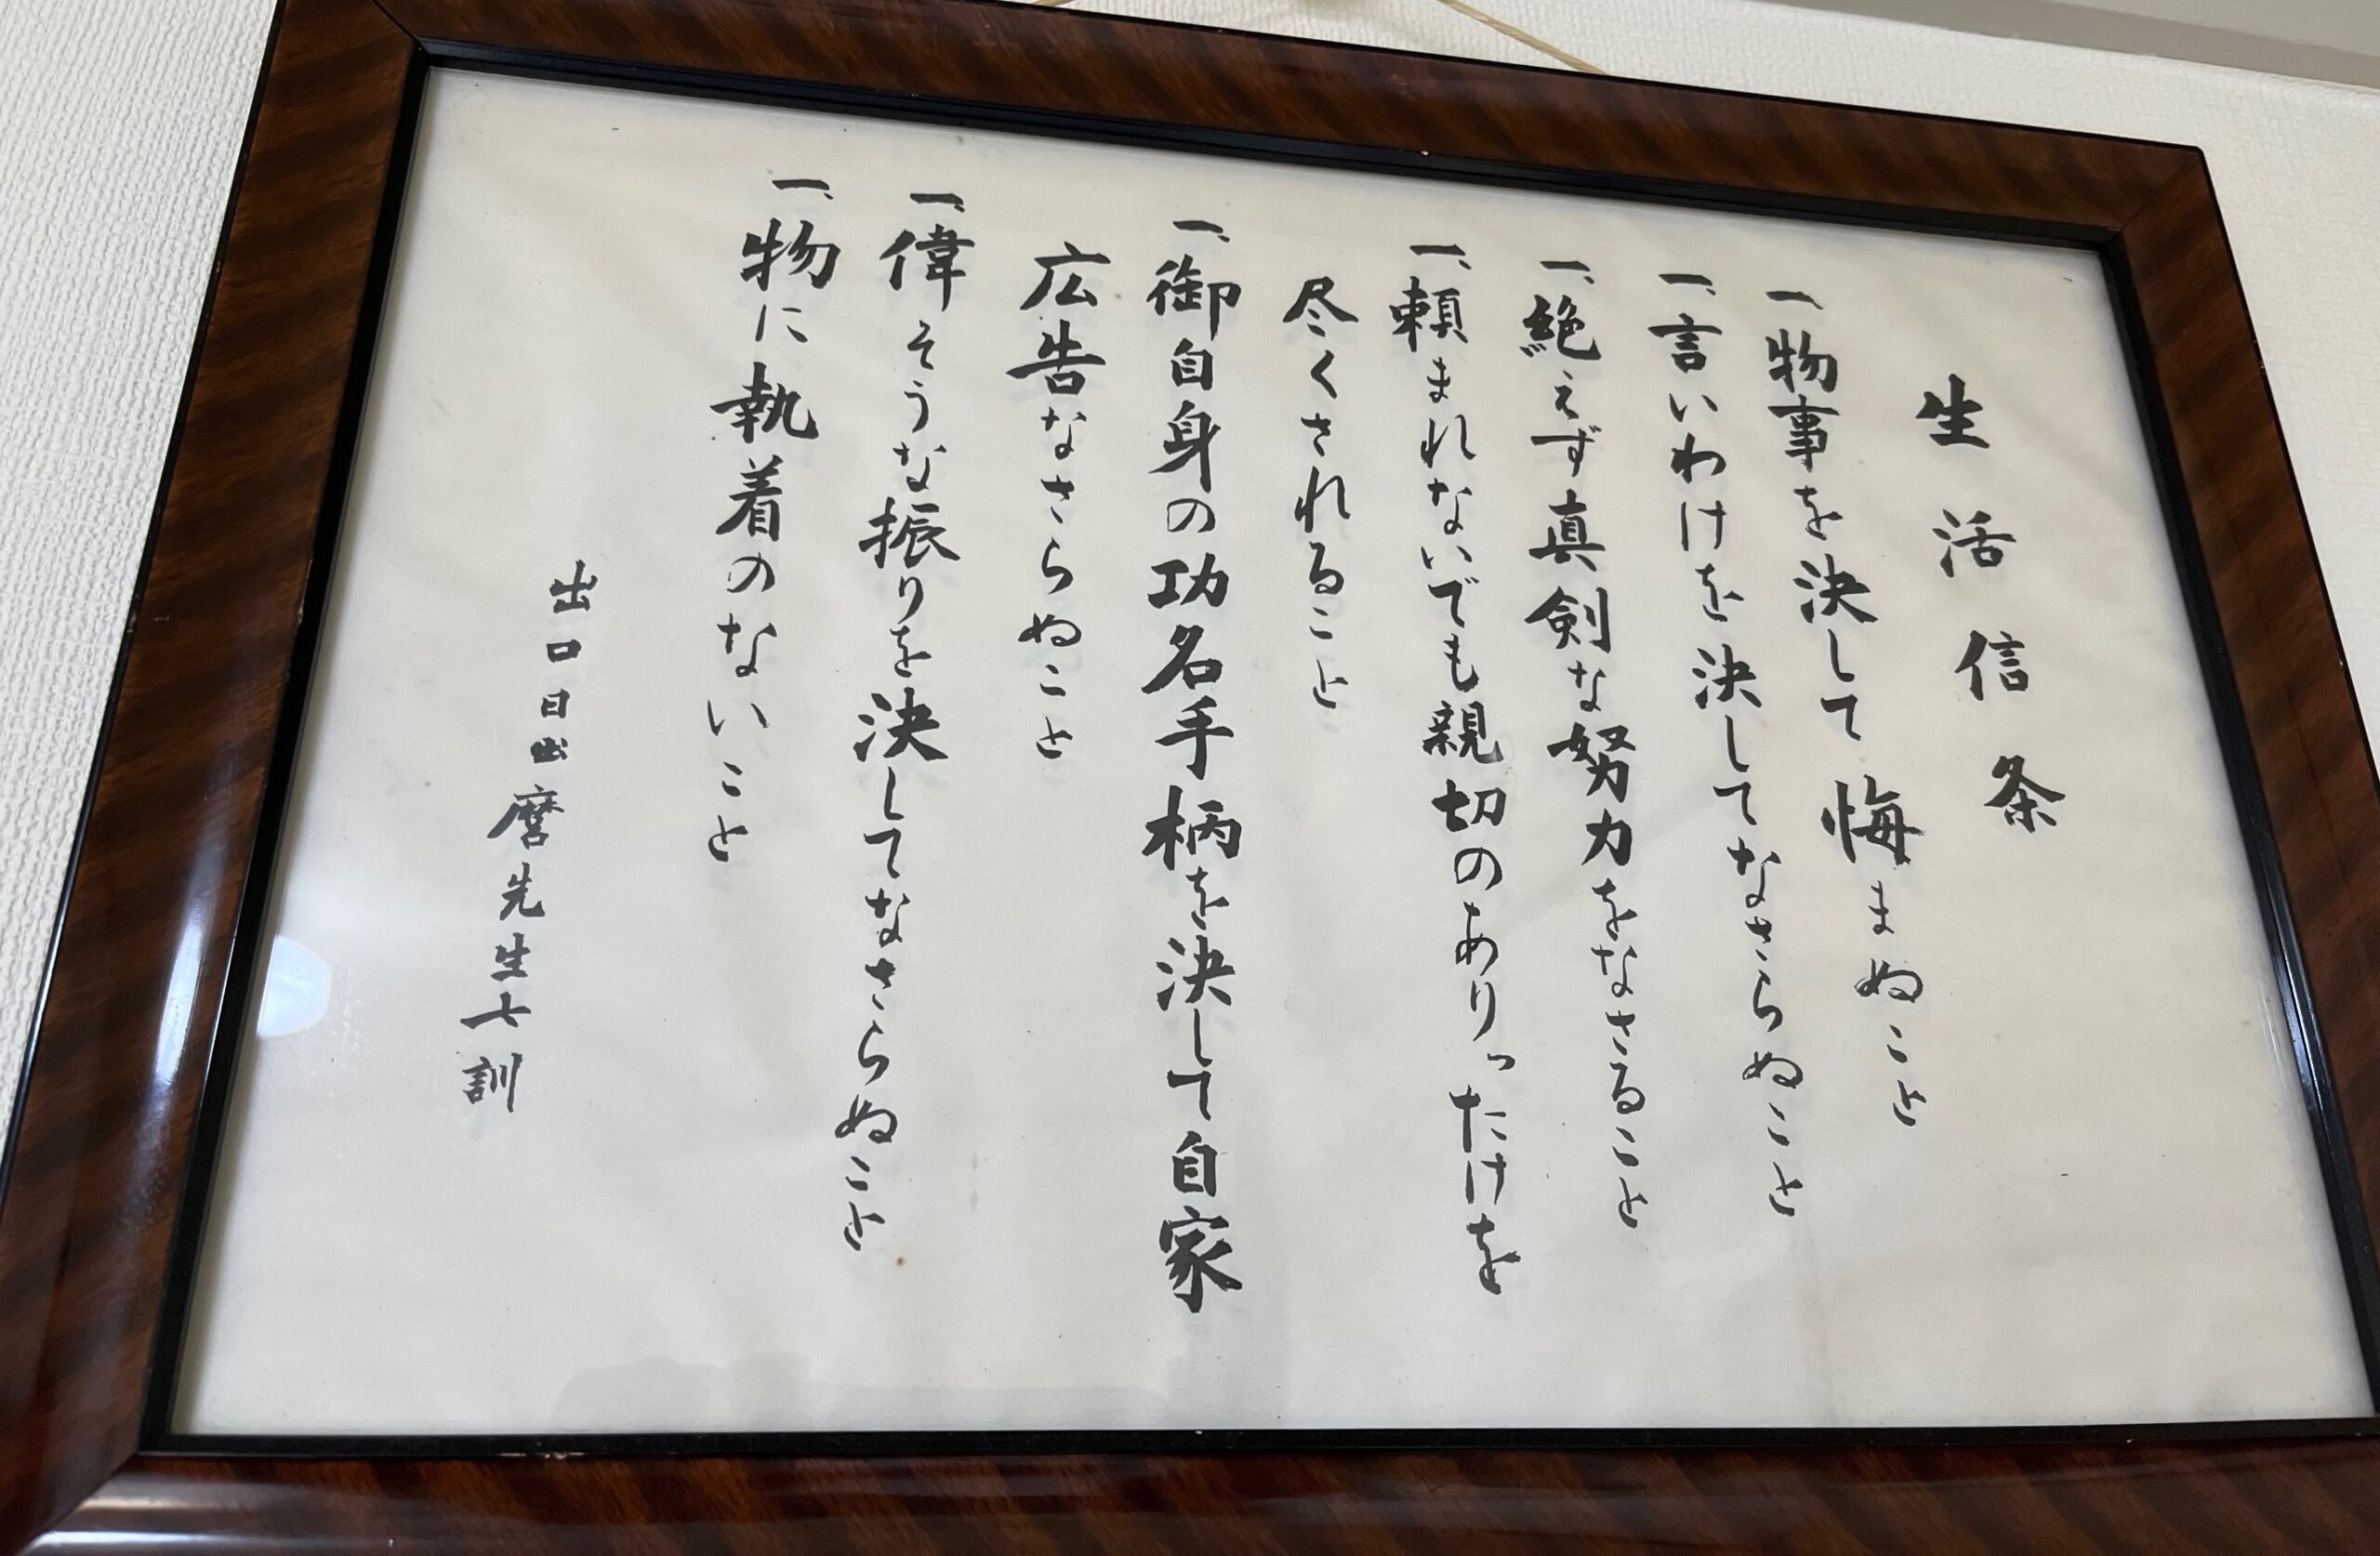 生活信条
一、物事を決して悔まぬこと
一、言いわけを決してなさらぬこと
一、絶えず真剣な努力をなさること
一、頼まれないでも親切のありったけを
尽くされること
一、御自身の功名手柄を決して自家
広告なさらぬこと
一、偉そうな振りを決してなさらぬこと
一、物に執着のないこと
出口日出麿先生七訓